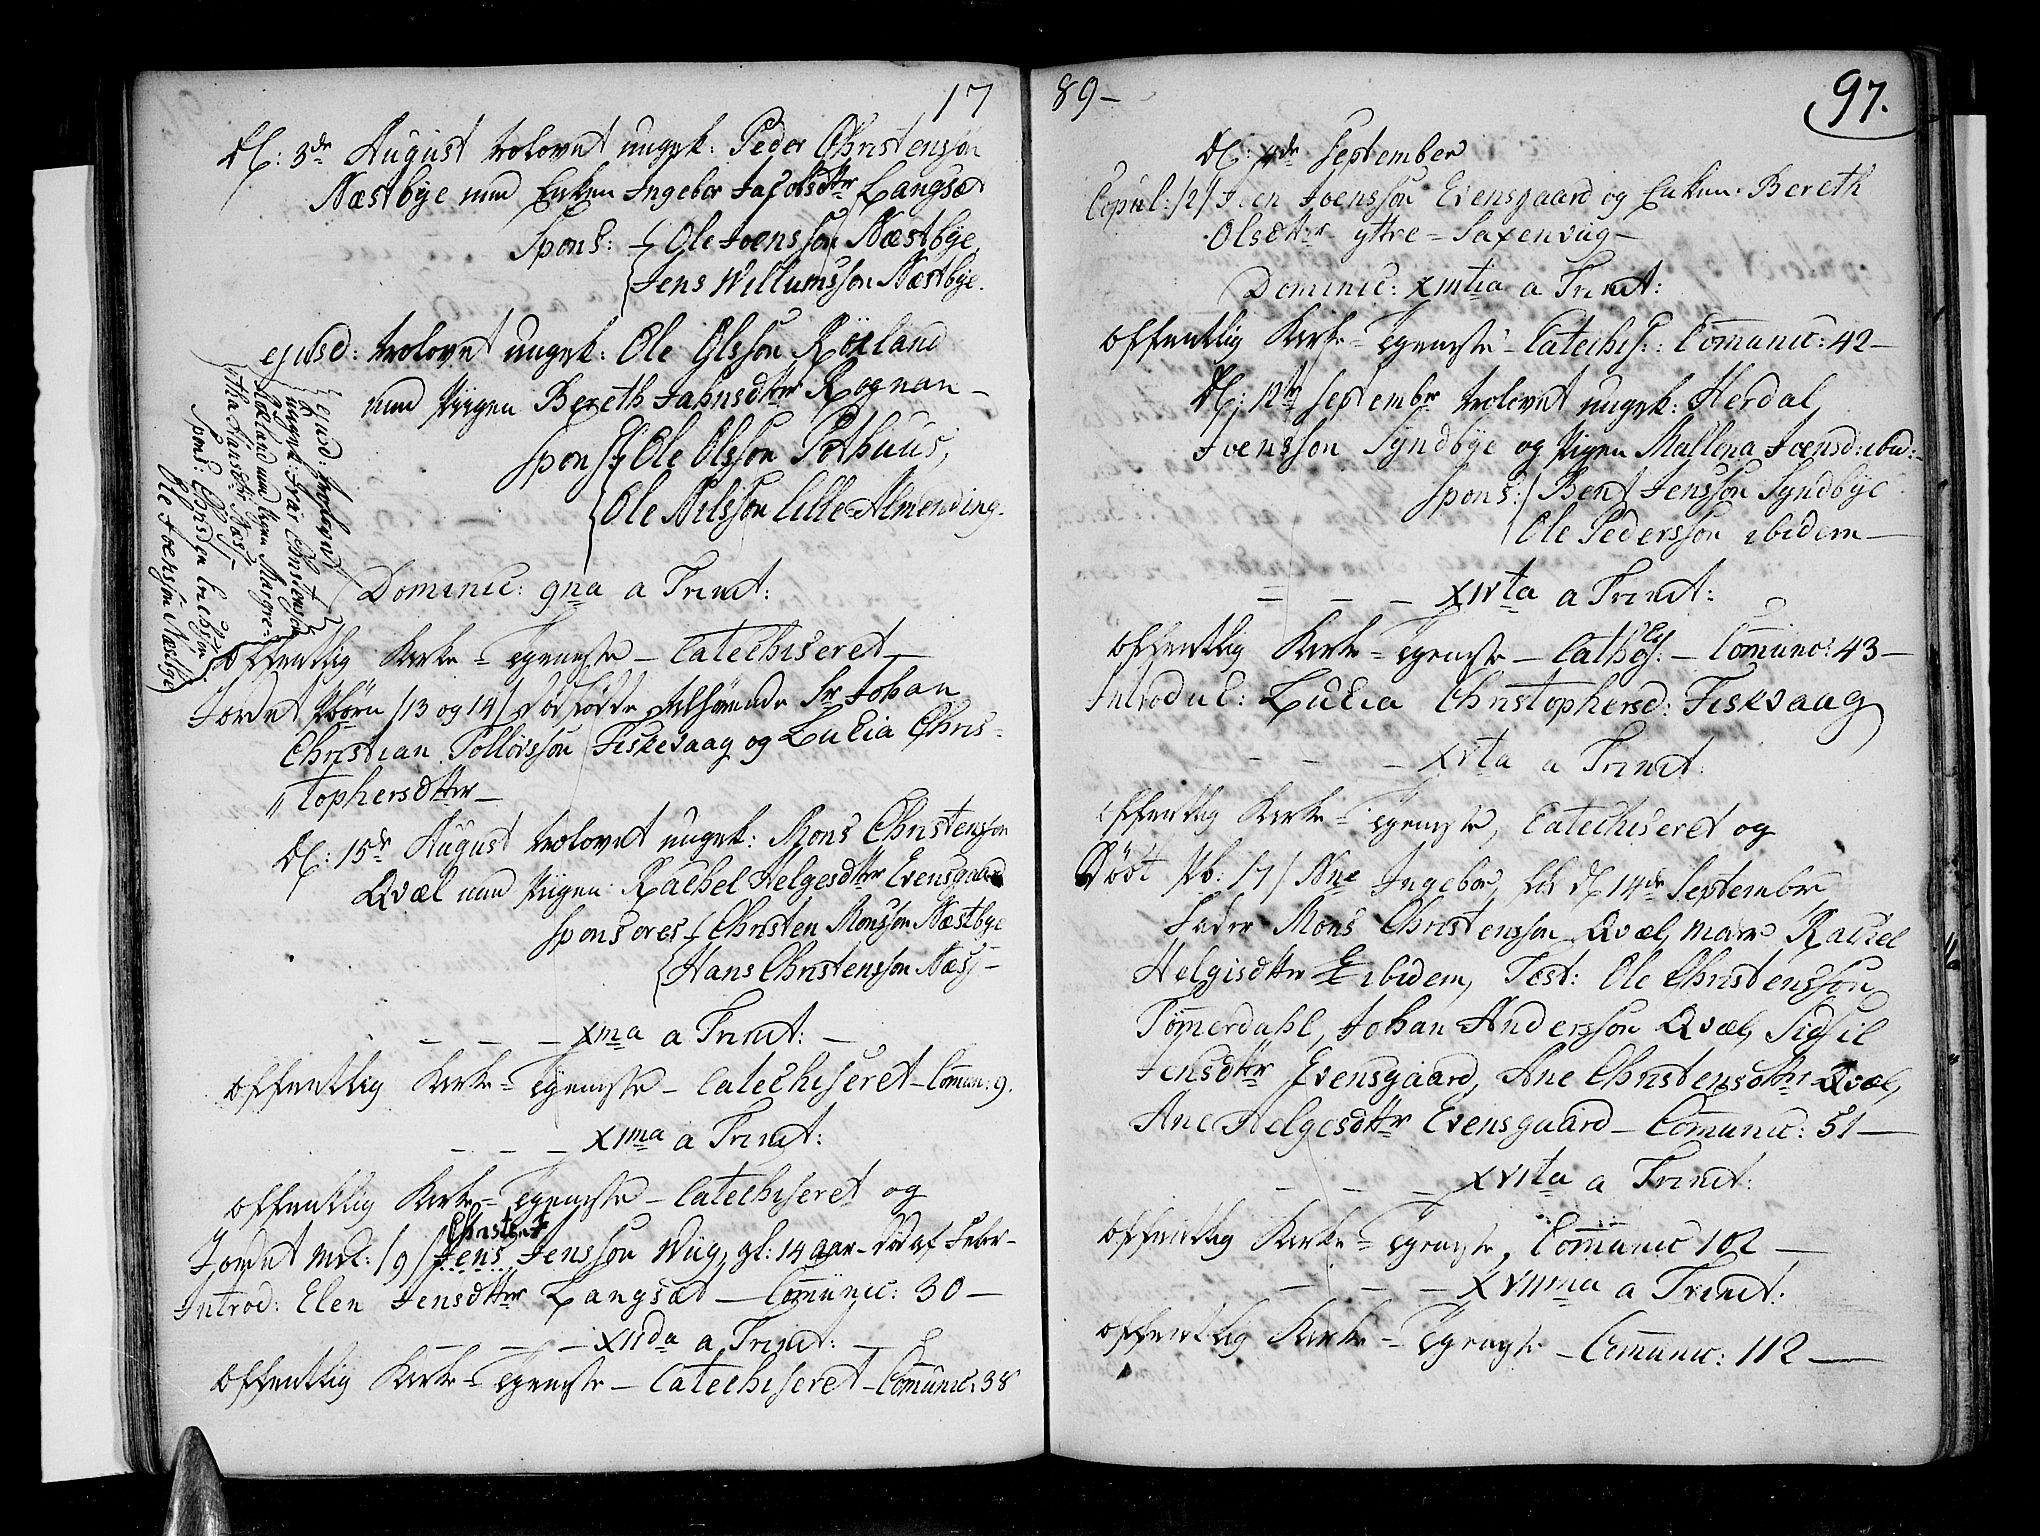 17
D: 3de August trolovet ungk: Peder Christensøn
Næstbye med Enken Ingebor Jacobsdtter Langsæt
Spons: Ole Joensson Næstbye,
Jens Willumsson Næstbye.
ejusd: trolovet ungk: Ole Olsson Røxland
med Pigen Bereth Jahnsdtter Rognan –
Spons: Ole Olsson Pothuus,
Ole Nilsson lille Almending –
ejusd: trolovet
ungk: Christensøn
med Pigen Margre=
tha Hansdtr Næs
Spons:
Ole Joensøn Næstbye
Dominic: 9na a Trinit:
Offentlig Kirke=Tgeneste – Catechiseret –
Jordet Børn /13 og 14/ dødfødte tilhørende Sr Johan
Christian Tollovsson Fiskevaag og Lucia Chris=
tophersdtter –
D: 15de August trolovet ungk: Mons Christensøn
Qvæl med Pigen: Rachel Helgesdtter Evensgaard
Sponsores Christen Monsson Næstbye
Hans Christensson Næss –
– – – xma a Trinit: –
Offentlig Kirke=Tgeneste – Catechiseret – Comun: 9.
– – – x1ma a Trinit:
Offentlig Kirke=Tgeneste – Catechiseret og
Christen
Jordet Mdl: /9/ Jens Jensson Viig, gl: 14 aar – død af Feber –
Introd: Elen Jensdtter Langsæt – Comunic: 30 –
– – – x11da a Trinit: –
Offentlig Kirke=Tgeneste – Catechiseret – Comunic: 38
89 –
97.
September
Copul: /2/ Joen Joensson Evensgaard og Enken: Bereth
Olsdtter yttre=Saxenviig –
Dominic: x111tia a Trinit:
Offentlig Kirke=Tgeneste – Catechis: Comunic: 42 –
D: 12te September trolovet ungk: Herdal
Joensson Syndbye og Pigen Mallena Joensd: ibid: –
Spons: Bent Jensson Syndbye
Ole Pedersson ibidem –
– – – x1vta a Trinit:
Offentlig Kirke=Tgeneste – – Comunic: 43 –
Introduc: Lucia Christophersd: Fiskvaag
– – – xvta a Trinit:
Offentlig Kirke=Tgeneste, Catechiseret og
Døbt Pb: /7/ Nne Ingebor, fød D 14de September
Fader Mons Christensson Qvæl, Moder Rachel
Helgisdtter ibidem, Test: Ole Christensson
Tømerdahl, Johan Andersson Qvæl, Sidsil
Jensdtter Evensgaard, Ane Christensdtter Qvæl,
Ane Helgesdtter Evensgaard – Comunic: 51 –
– – – xv1ta a Trinit:
Offentlig Kirke=Tgeneste, Comunic 102 –
– – – xv11ma a Trinit:
Offentlig Kirke=Tgeneste – Comunic: 112 –